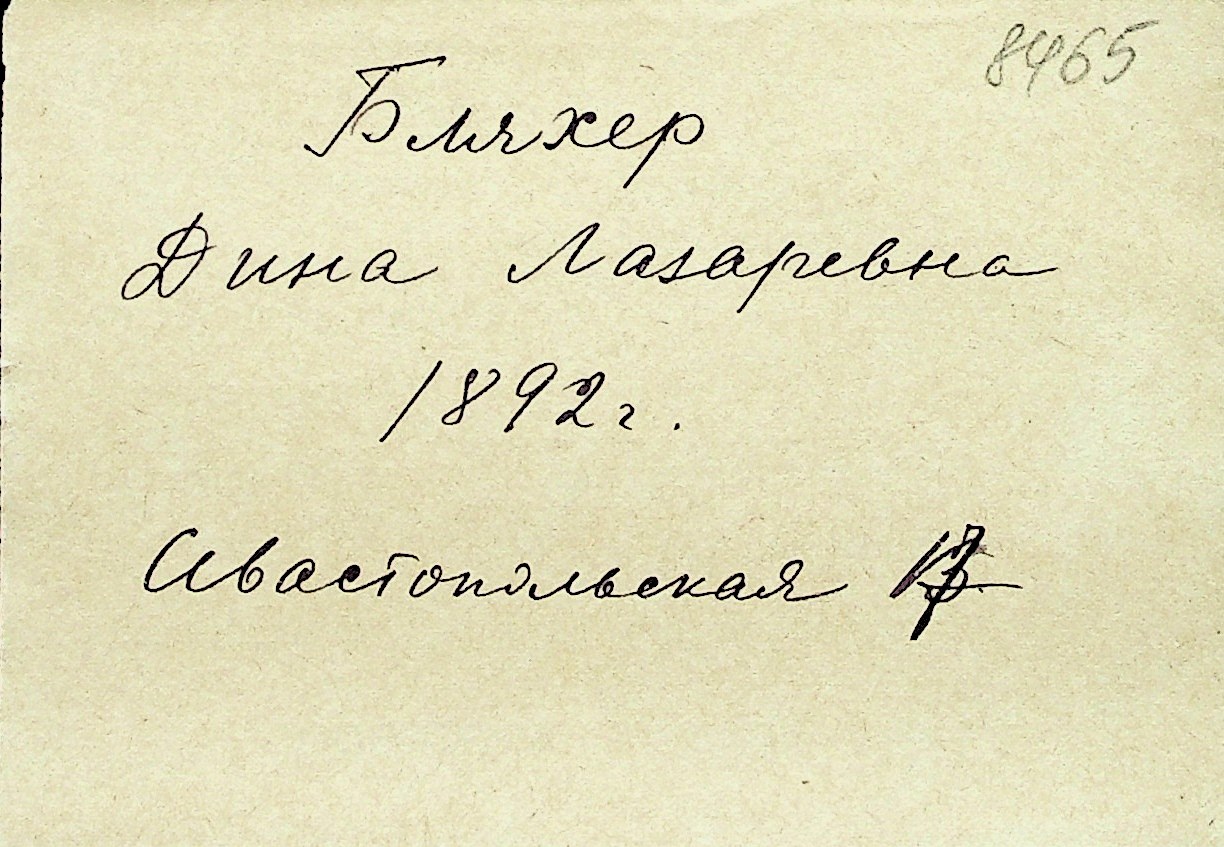 8465
Бляхер
Дина Лазаревна
1892 г.
Севастопольская